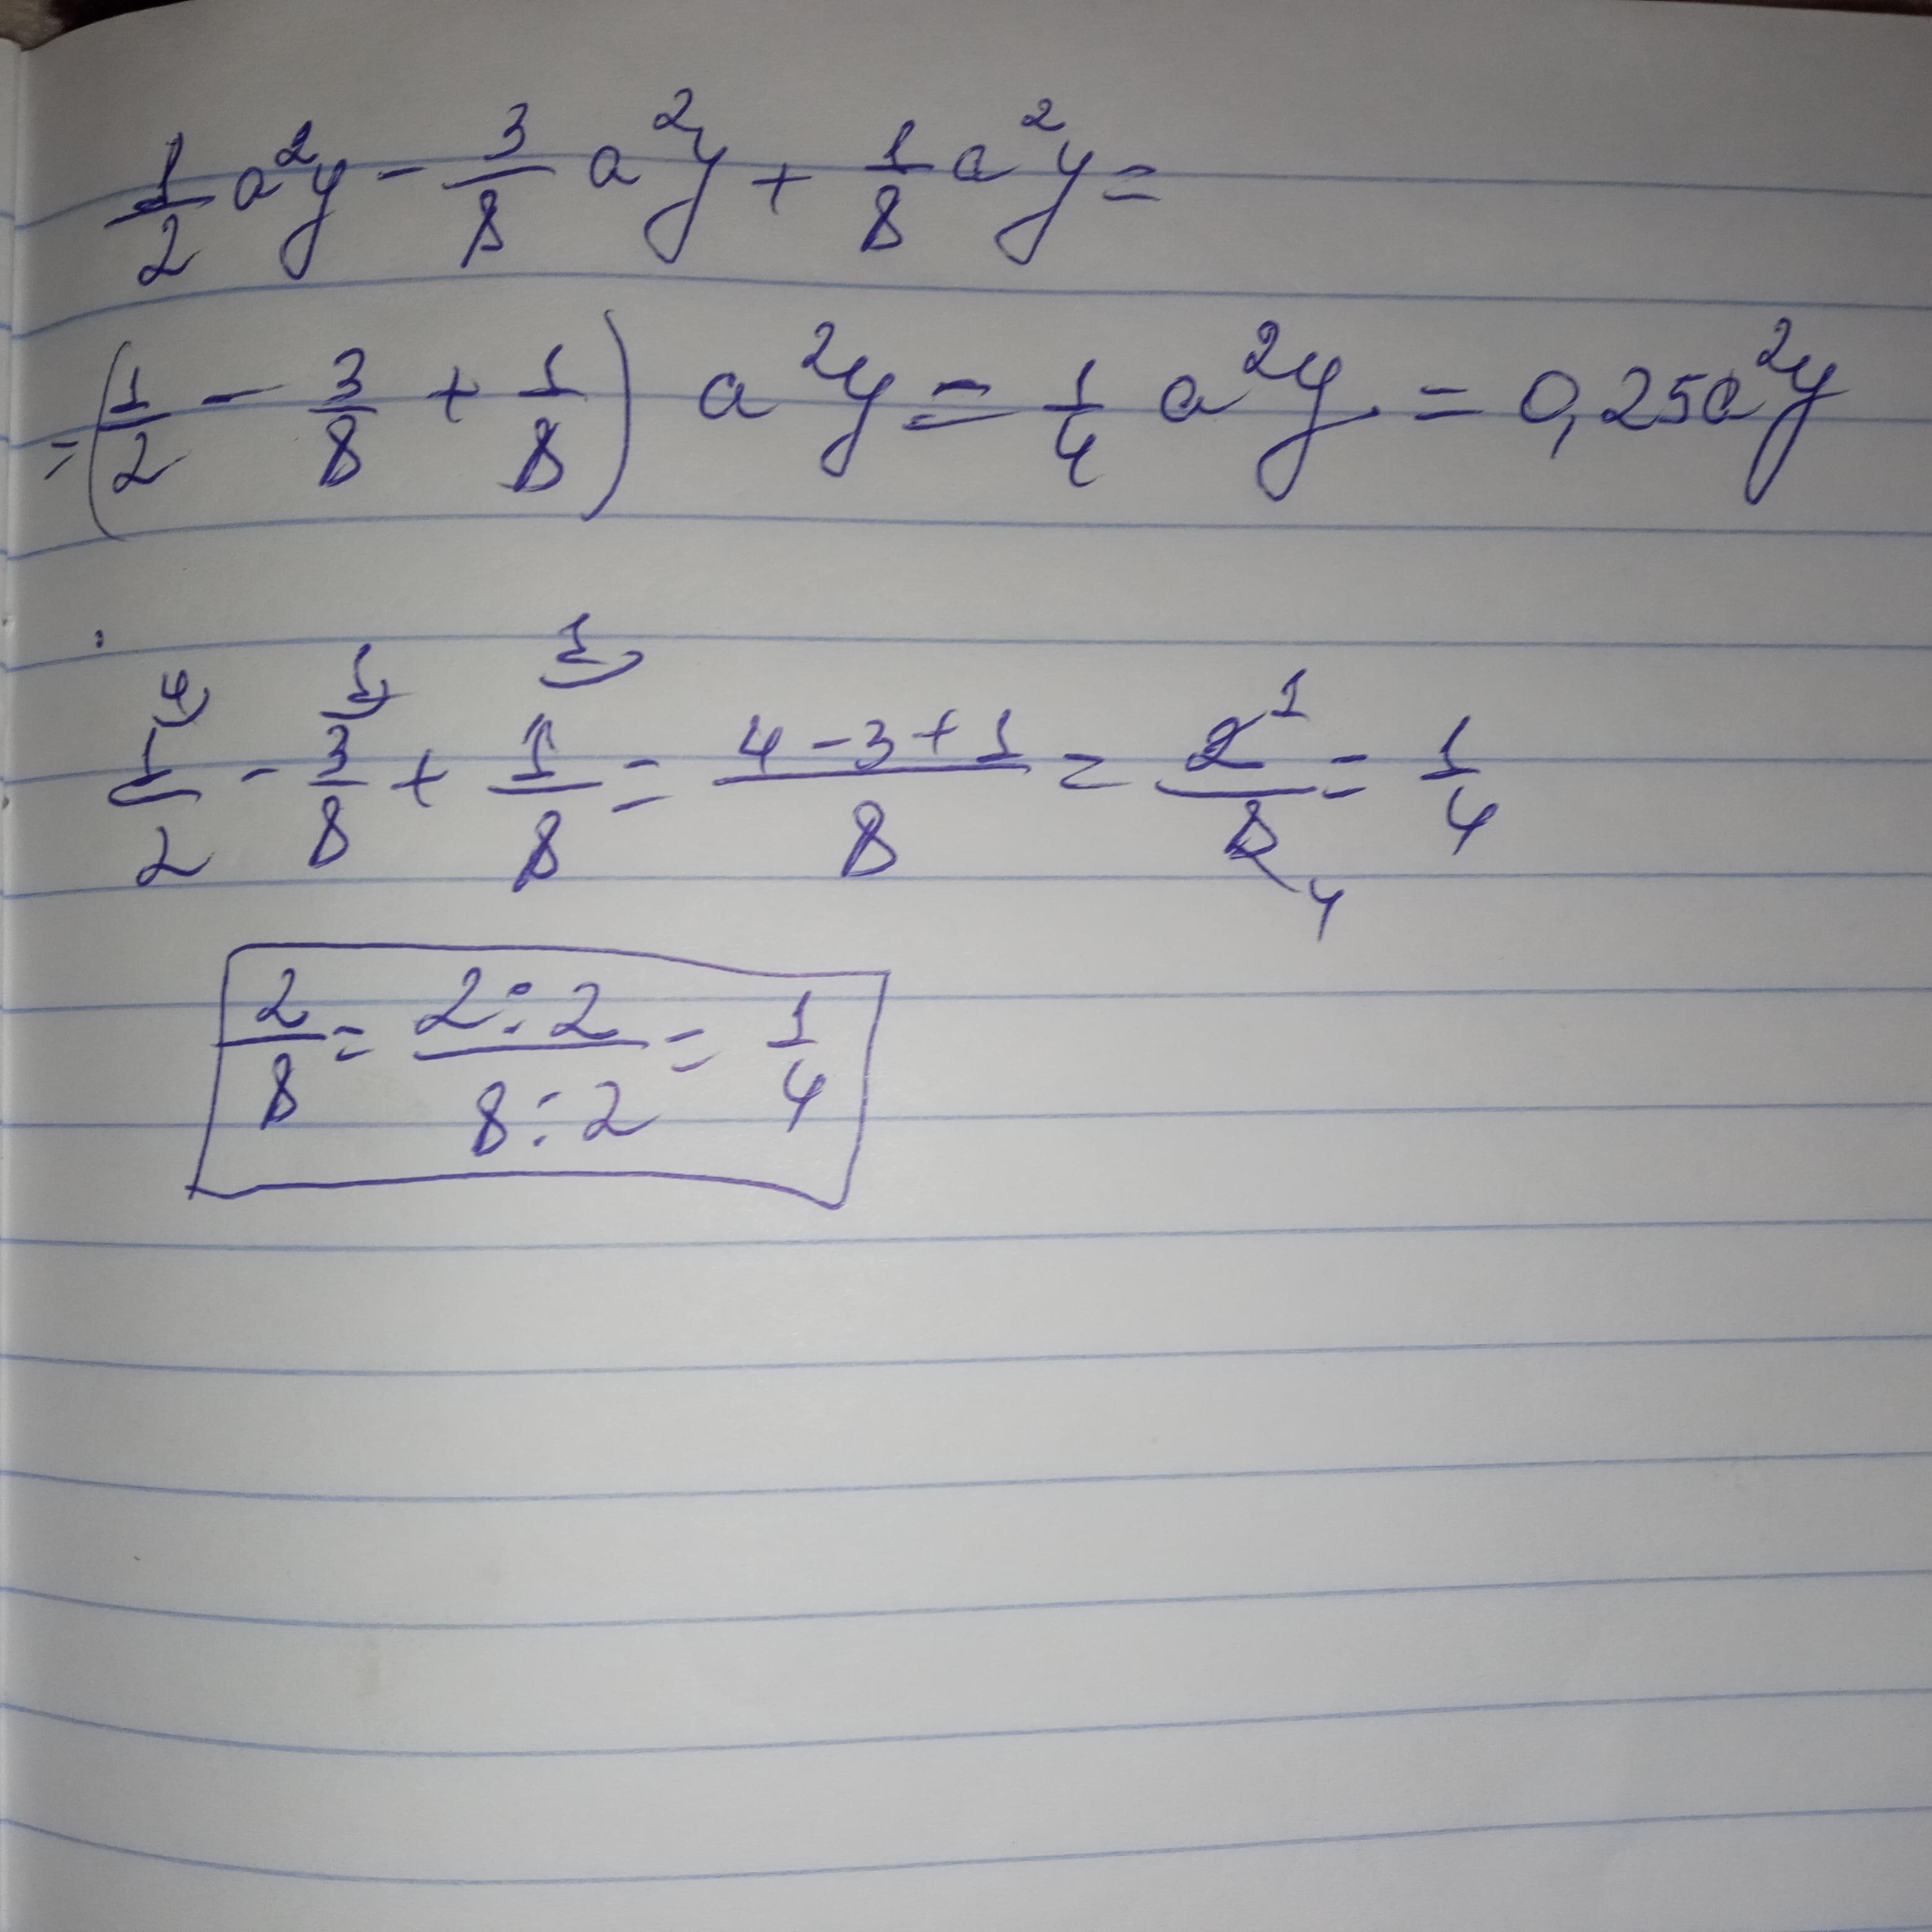 1/2 a²y - 3/8 a²y + 1/8 a²y =
= (1/2 - 3/8 + 1/8) a²y = 1/4 a²y = 0,25a²y
4 1 1
1/2 - 3/8 + 1/8 = (4 - 3 + 1)/8 = 2¹/8₄ = 1/4
2/8 = (2 : 2)/(8 : 2) = 1/4